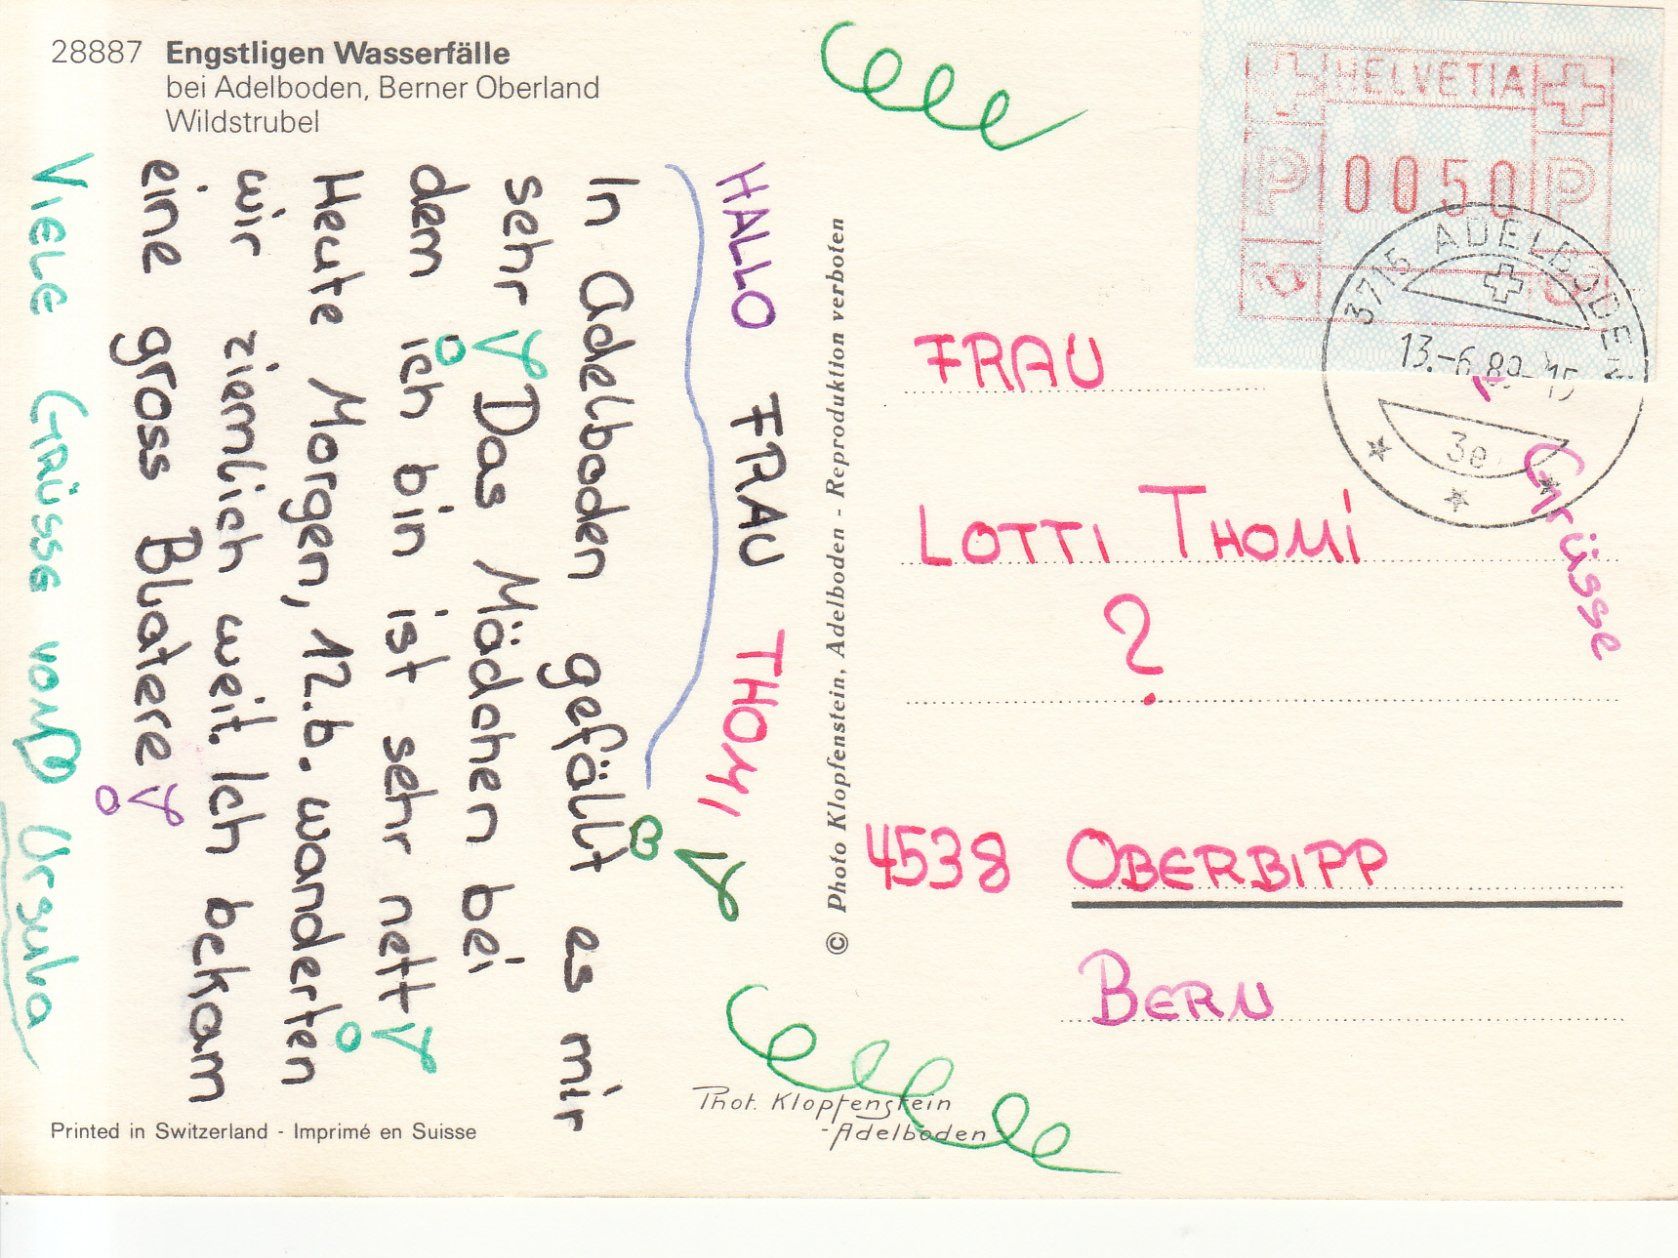 28887 Engstligen Wasserfälle
bei Adelboden, Berner Oberland
Wildstrubel
HALLO FRAU THOMI
In Adelboden gefällt es mir
sehr! Das Mädchen bei
dem ich bin ist sehr nett!
Heute Morgen, 12.6. wanderten
wir ziemlich weit. Ich bekam
eine gross Blatere!
VIELE GRÜSSE VON Ursula
Printed in Switzerland - Imprimé en Suisse
© Photo Klopfenstein, Adelboden - Reproduktion verboten
Phot. Klopfenstein
-Adelboden-
HELVETIA
P 0050 P
3715 ADELBODEN
13.-6.89-15
3e
Grüsse
FRAU
LOTTI THOMI
?
4538 OBERBIPP
BERN